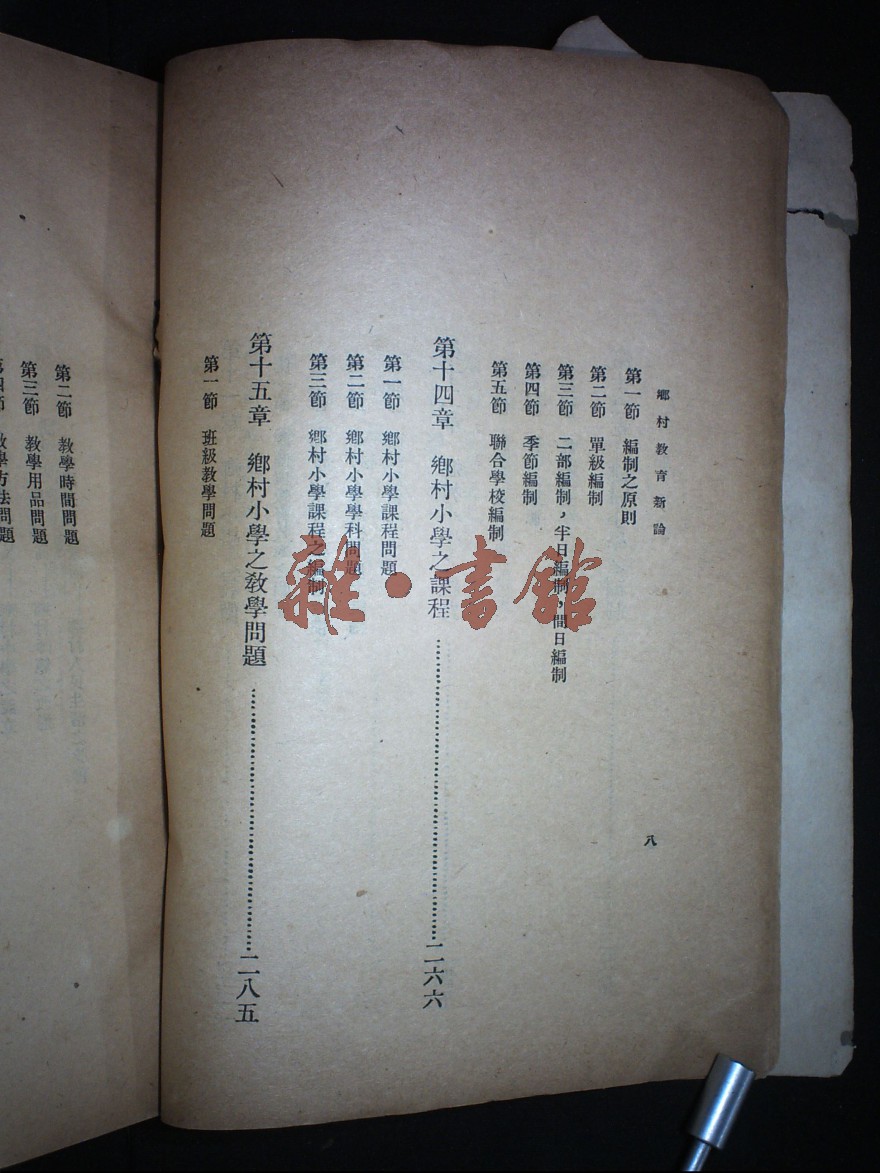 鄉村教育新論
八
第一節 編制之原則
第二節 單級編制
第三節 二部編制，半日編制，間日編制
第四節 季節編制
第五節 聯合學校編制
第十四章 鄉村小學之課程……二六六
第一節 鄉村小學課程問題
第二節 鄉村小學學科問題
第三節 鄉村小學課程之編制
第十五章 鄉村小學之教學問題……二八五
第一節 班級教學問題
第二節 教學時間問題
第三節 教學用品問題
第四節 教學方法問題
雜·書館